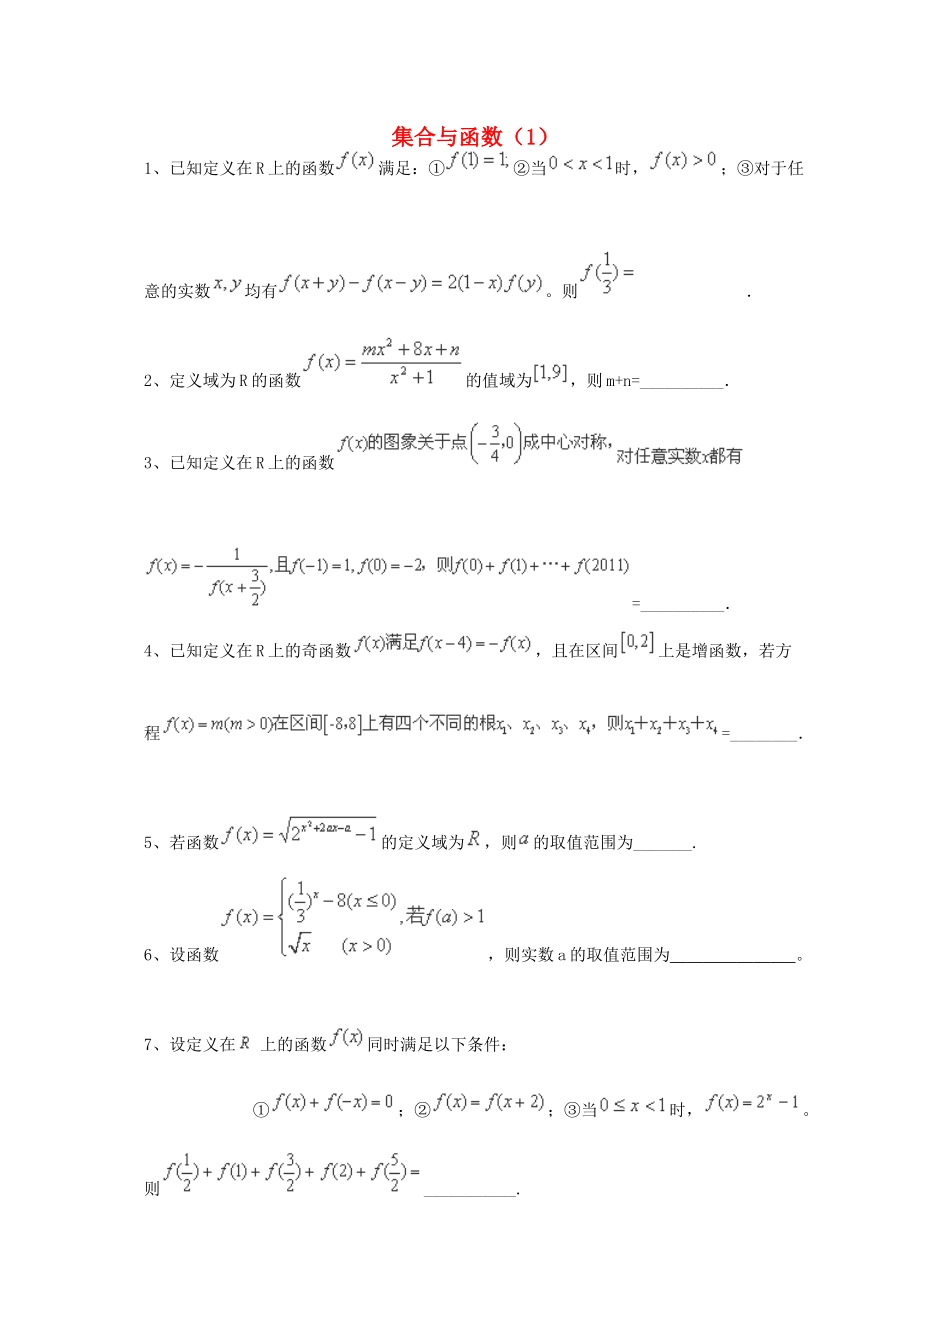 集合与函数（1）
1、已知定义在 R 上的函数 f(x) 满足：①f(1) = 1; ②当 0 < x < 1 时，f(x) > 0；③对于任
意的实数 x, y 均有 f(x + y) − f(x − y) = 2(1 − x)f(y)。则 f(1/3) = .
2、定义域为 R 的函数 f(x) = (mx² + 8x + n)/(x² + 1) 的值域为 [1,9]，则 m+n=__________.
3、已知定义在 R 上的函数 f(x)的图象关于点(−3/4,0)成中心对称，对任意实数x都有
f(x) = −1/f(x + 3/2), 且f(−1) = 1, f(0) = −2，则f(0) + f(1) + ··· + f(2011) =__________.
4、已知定义在 R 上的奇函数 f(x)满足f(x − 4) = −f(x)，且在区间 [0,2] 上是增函数，若方
程 f(x) = m(m > 0)在区间[-8,8]上有四个不同的根x₁、x₂、x₃、x₄，则x₁+x₂+x₃+x₄ =________.
5、若函数 f(x) = √(2^(x²+2ax−a) − 1) 的定义域为 R，则 a 的取值范围为_______.
6、设函数 f(x) = { (1/3)^x − 8(x ≤ 0) , √x (x > 0) ,若f(a) > 1，则实数 a 的取值范围为_______________。
7、设定义在 R 上的函数 f(x) 同时满足以下条件：
①f(x) + f(−x) = 0；②f(x) = f(x + 2)；③当 0 ≤ x < 1 时，f(x) = 2^x − 1。
则 f(1/2) + f(1) + f(3/2) + f(2) + f(5/2) = ___________.